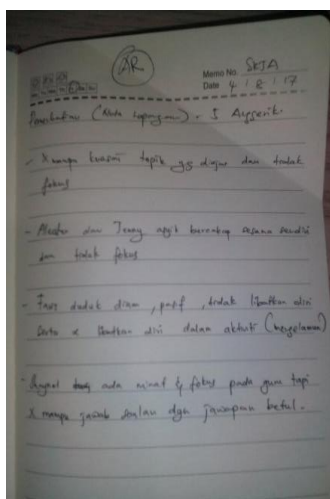 AR
Memo No. SKJA
Date 4 / 8 / 17
Pemerhatian (Nota Lapangan) - 5
- X mampu kuasai topik yg diajar dan tidak
fokus
- dan Jenny asyik bercakap sesama sendiri
dan tidak fokus
- duduk diam, pasif, tidak libatkan diri
serta X libatkan diri dalam aktiviti
- ada minat & fokus pada guru tapi
X mampu jawab soalan dgn jawapan betul.